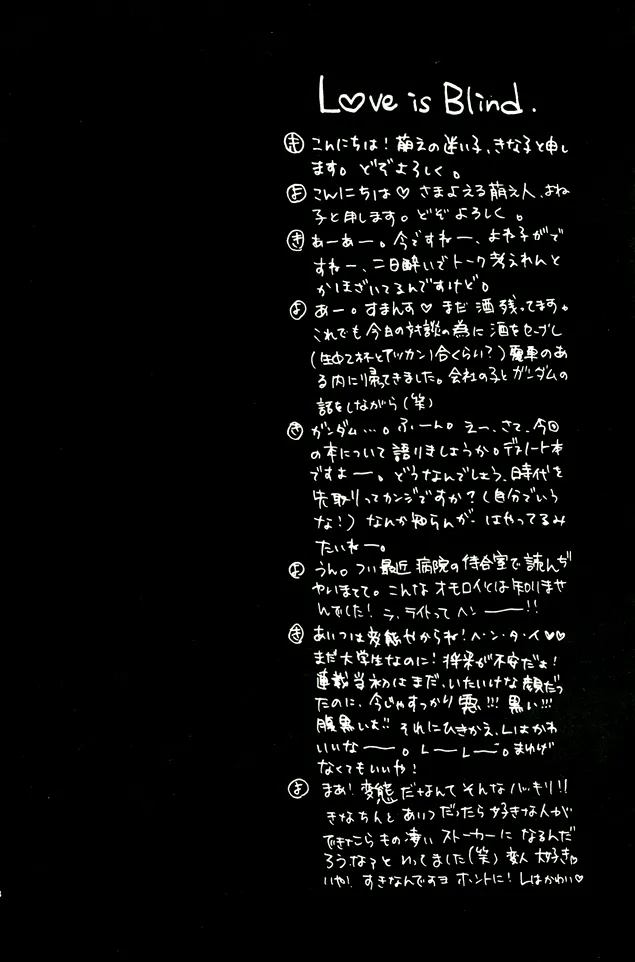 Love is Blind.
き こんにちは！萌えの迷い子、きな子と申し
ます。どぞよろしく。
よ こんにちは♡さまよえる萌え人、よね
子と申します。どぞよろしく。
き あーあー。今ですねー、よね子がで
すねー、二日酔いでトーク考えれんと
かほざいてるんですけど。
よ あー。すまんす♡まだ酒残ってます。
これでも今日の対談の為に酒をセーブし
(生中2杯とアツカン1合くらい？)電車のあ
る内に帰ってきました。会社の子とガンダムの
話をしながら(笑)
き ガンダム…。ふーん。えー、さて、今回
の本について語りましょうか。デスノート本
ですよー。どうなんでしょう、時代を
先取りってカンジですか？(自分でいう
な！)なんか知らんが、はやってるみ
たいねー。
よ うん。つい最近病院の待合室で読んぢ
ゃいまして。こんなオモロイとは知りませ
んでした！ラ、ライトってヘンーー!!
き あいつは変態やからね！ヘ・ン・タ・イ♡♡
まだ大学生なのに！将来が不安だよ！
連載当初はまだ、いたいけな顔だっ
たのに、今じゃすっかり悪い!!!黒い!!!
腹黒いよ!!それにひきかえ、Lはかわ
いいなー。LーLー。まゆげ
なくてもいいや！
よ まあ！変態だなんてそんなハッキリ!!
きなちんとあいつだったら好きな人が
できたらもの凄いストーカーになるんだ
ろうなぁといってました(笑)変人大好き♡
いや！すきなんですヨホントに！Lはかわい♡